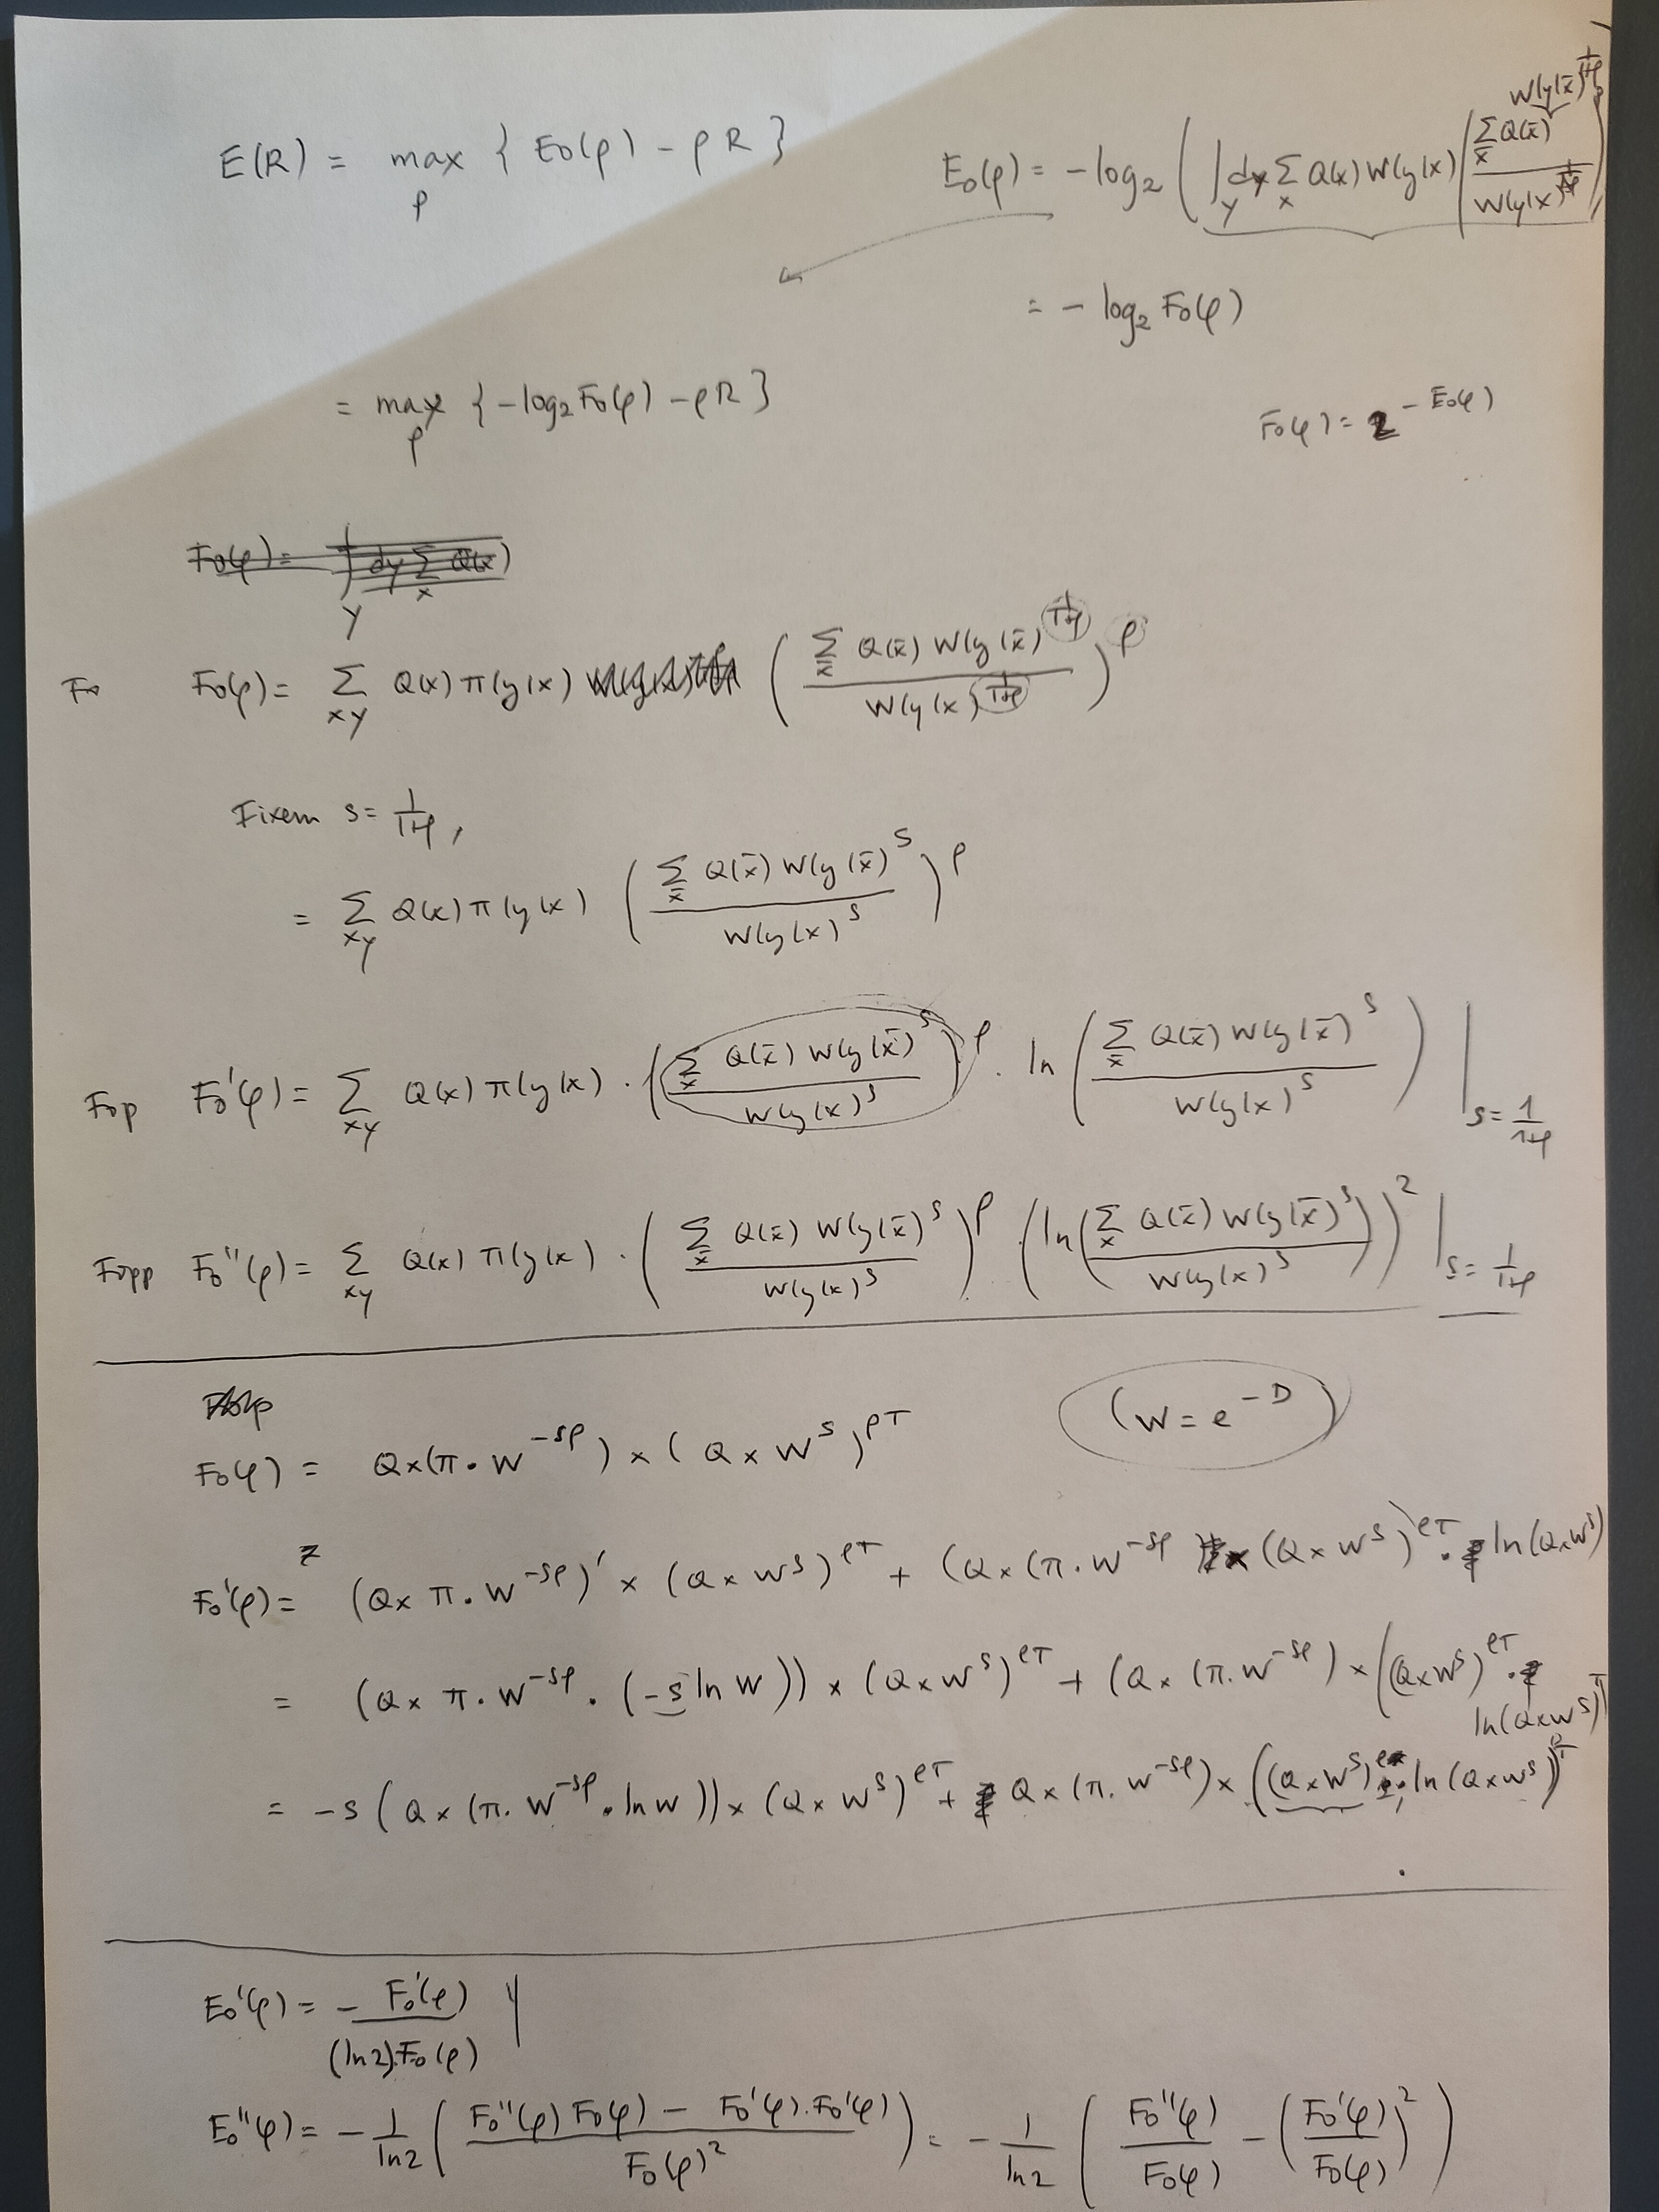 E(R) = max_ρ { E₀(ρ) − ρR }
E₀(ρ) = −log₂ ( ∫_Y dy Σ_x Q(x) W(y|x) ( Σ_x̄ Q(x̄) W(y|x̄)^{1/(1+ρ)} / W(y|x)^{1/(1+ρ)} )^ρ )
= − log₂ F₀(ρ)
= max_ρ { −log₂ F₀(ρ) − ρR }
F₀(ρ) = 2^{−E₀(ρ)}
F₀(ρ) = ∫_Y dy Σ_x Q(x)
Fo F₀(ρ) = Σ_{xy} Q(x) π(y|x) ( Σ_x̄ Q(x̄) W(y|x̄)^{1/(1+ρ)} / W(y|x)^{1/(1+ρ)} )^ρ
Fixem s = 1/(1+ρ),
= Σ_{xy} Q(x) π(y|x) ( Σ_x̄ Q(x̄) W(y|x̄)^s / W(y|x)^s )^ρ
Fop F₀'(ρ) = Σ_{xy} Q(x) π(y|x) · ( Σ_x̄ Q(x̄) W(y|x̄)^s / W(y|x)^s )^ρ · ln ( Σ_x̄ Q(x̄) W(y|x̄)^s / W(y|x)^s ) |_{s = 1/(1+ρ)}
Fopp F₀''(ρ) = Σ_{xy} Q(x) π(y|x) · ( Σ_x̄ Q(x̄) W(y|x̄)^s / W(y|x)^s )^ρ · ( ln ( Σ_x̄ Q(x̄) W(y|x̄)^s / W(y|x)^s ) )² |_{s = 1/(1+ρ)}
(W = e^{−D})
F₀(ρ) = Q×(π·W^{−sρ}) × (Q × W^s)^{ρT}
F₀'(ρ) = (Q× π·W^{−sρ})' × (Q × W^s)^{ρT} + (Q × (π·W^{−sρ} × (Q × W^s)^{ρT} · ln(Q×W^s)
= (Q× π·W^{−sρ} · (−s ln W)) × (Q×W^s)^{ρT} + (Q × (π·W^{−sρ}) × ((Q×W^s)^{ρT} · ln(Q×W^s)^T
= −s (Q × (π·W^{−sρ} · ln W)) × (Q × W^s)^{ρT} + Q × (π·W^{−sρ}) × ((Q×W^s)^ρ · ln(Q×W^s))^T
E₀'(ρ) = − F₀'(ρ) / ((ln2)·F₀(ρ))
E₀''(ρ) = − 1/ln2 ( (F₀''(ρ) F₀(ρ) − F₀'(ρ)·F₀'(ρ)) / F₀(ρ)² ) = − 1/ln2 ( F₀''(ρ)/F₀(ρ) − (F₀'(ρ)/F₀(ρ))² )